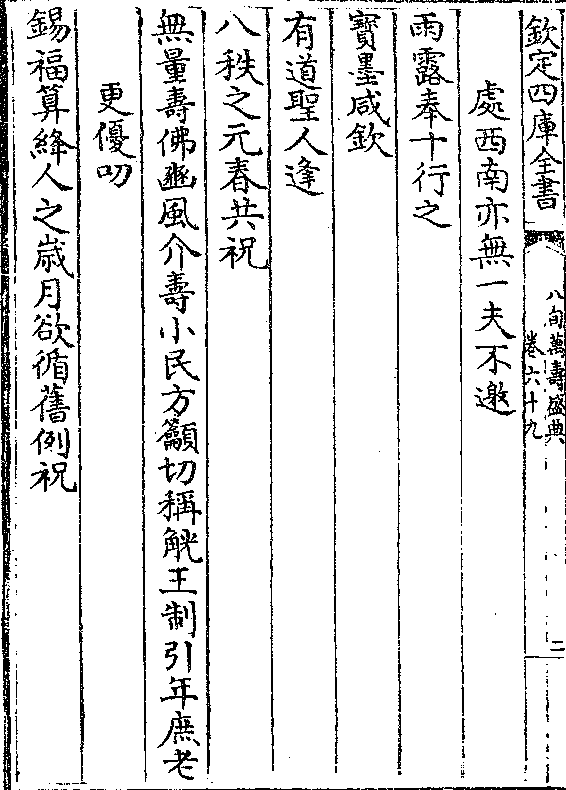 欽定四庫全書
八旬萬壽盛典
卷六十九
二
處西南亦無一夫不邀
雨露奉十行之
寶墨咸欽
有道聖人逢
八秩之元春共祝
無量壽佛豳風介壽小民方籲切稱觥王制引年庶老
更優叨
錫福算絳人之嵗月欲循舊例祝